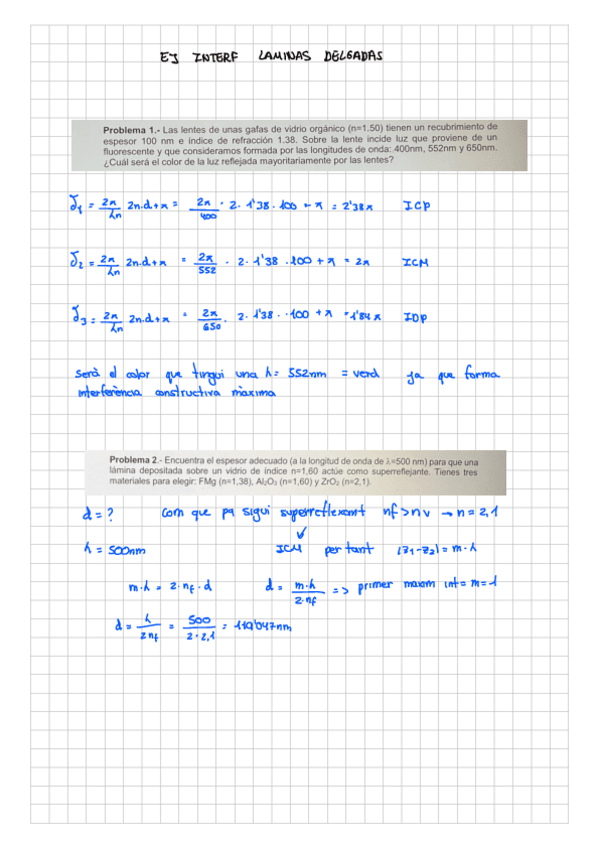 EJ INTERF LAMINAS DELGADAS
Problema 1.- Las lentes de unas gafas de vidrio orgánico (n=1.50) tienen un recubrimiento de
espesor 100 nm e índice de refracción 1.38. Sobre la lente incide luz que proviene de un
fluorescente y que consideramos formada por las longitudes de onda: 400nm, 552nm y 650nm.
¿Cuál será el color de la luz reflejada mayoritariamente por las lentes?
δ1 = 2π/λn 2n.d+π = 2π/400 · 2. 1'38. 100 + π = 2'38π ICp
δ2 = 2π/λn 2n.d+π = 2π/552 . 2. 1'38 .100 + π = 2π ICM
δ3 = 2π/λn 2n.d+π = 2π/650 . 2. 1'38 . .100 + π = 1'84π IDp
Serà el color que tingui una λ= 552nm = verd ja que forma
interferència constructiva màxima
Problema 2.- Encuentra el espesor adecuado (a la longitud de onda de λ=500 nm) para que una
lámina depositada sobre un vidrio de índice n=1,60 actúe como superreflejante. Tienes tres
materiales para elegir: FMg (n=1,38), Al₂O₃ (n=1,60) y ZrO₂ (n=2,1).
d = ? Com que pq sigui superreflexant nf > nv → n = 2,1
λ = 500nm ICM per tant |z1-z2| = m·λ
m·λ = 2·nf·d d = m·λ/2·nf => primer maxim int = m=1
d = λ/2nf = 500/2·2,1 = 119'047nm